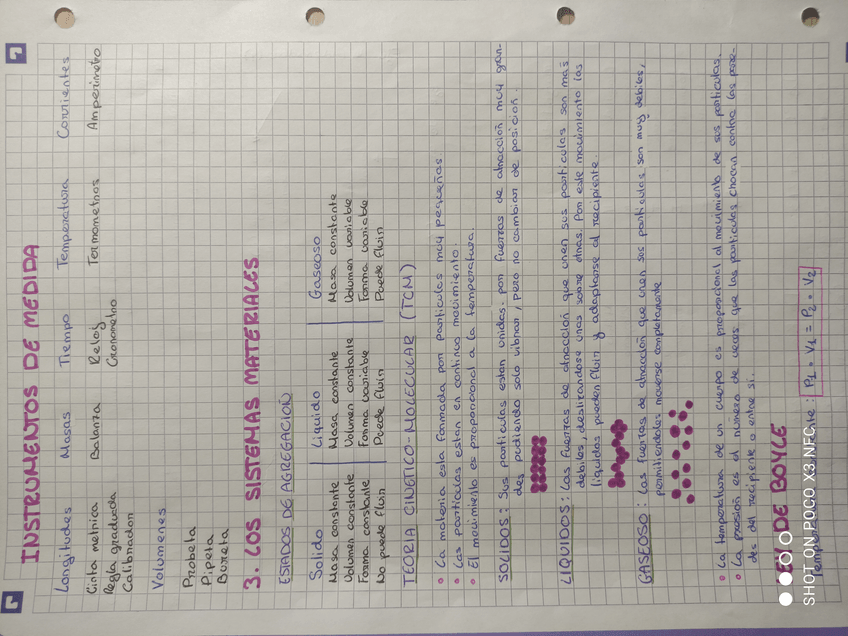 INSTRUMENTOS DE MEDIDA
Longitudes Masas Tiempo Temperatura Corrientes
Cinta metrica Balanza Reloj Termometros Amperimetro
Regla graduada Cronometro
Calibrador
Volumenes
Probeta
Pipeta
Bureta
3. LOS SISTEMAS MATERIALES
ESTADOS DE AGREGACIÓN
Solido Liquido Gaseoso
Masa constante Masa constante Masa constante
Volumen constante Volumen constante Volumen variable
Forma constante Forma variable Forma variable
No puede fluir Puede fluir Puede fluir
TEORIA CINETICO-MOLECULAR (TCM)
• La materia esta formada por particulas muy pequeñas
• Las particulas estan en continuo movimiento.
• El movimiento es proporcional a la temperatura.
SOLIDOS: Sus particulas estan unidas por fuerzas de atracción muy gran-
des pudiendo solo vibrar, pero no cambiar de posición.
LIQUIDOS: Las fuerzas de atracción que unen sus particulas son mas
debiles, deslizandose unas sobre otras. Por este movimiento los
liquidos pueden fluir y adaptarse al recipiente.
GASEOSO: Las fuerzas de atracción que unen sus particulas son muy debiles,
permitiendoles moverse completamente
• La temperatura de un cuerpo es proporcional al movimiento de sus particulas.
• La presión es el número de veces que las particulas chocan contra las pare-
des del recipiente o entre si.
LEY DE BOYLE
P1 • V1 = P2 • V2
SHOT ON POCO X3 NFC